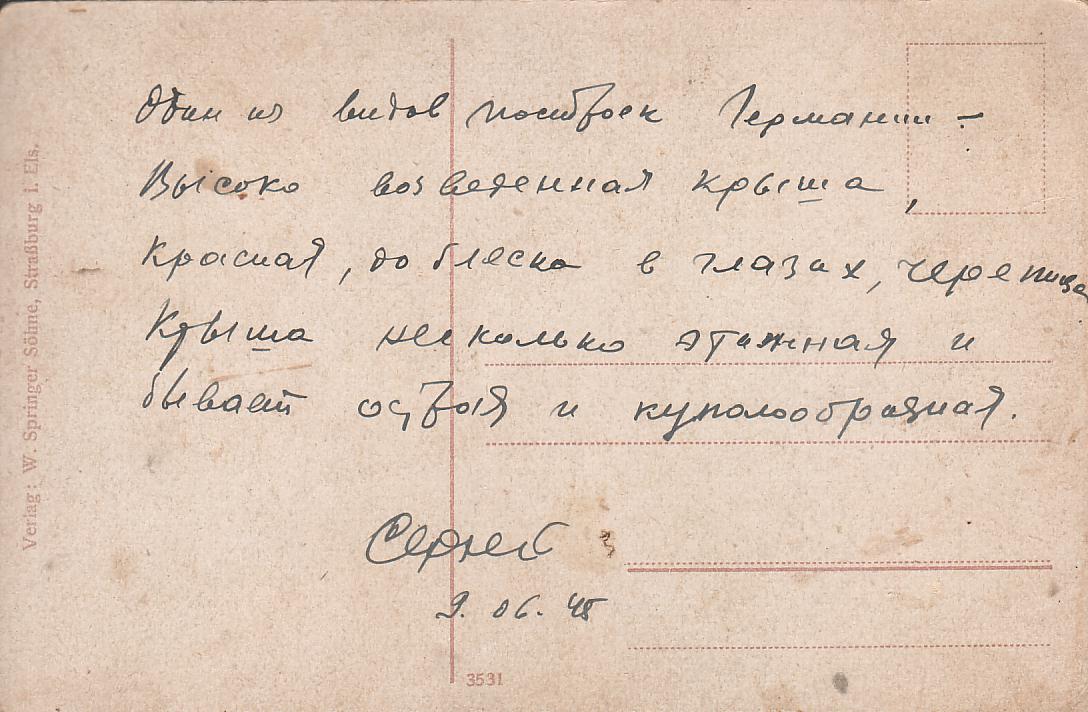 Один из видов построек Германии –
Высоко возведенная крыша,
красная, до блеска в глазах, черепица
Крыша несколько этажная и
бывает острая и куполообразная.
Сергей
9.06.45
3531
Verlag: W. Springer Söhne, Straßburg i. Els.